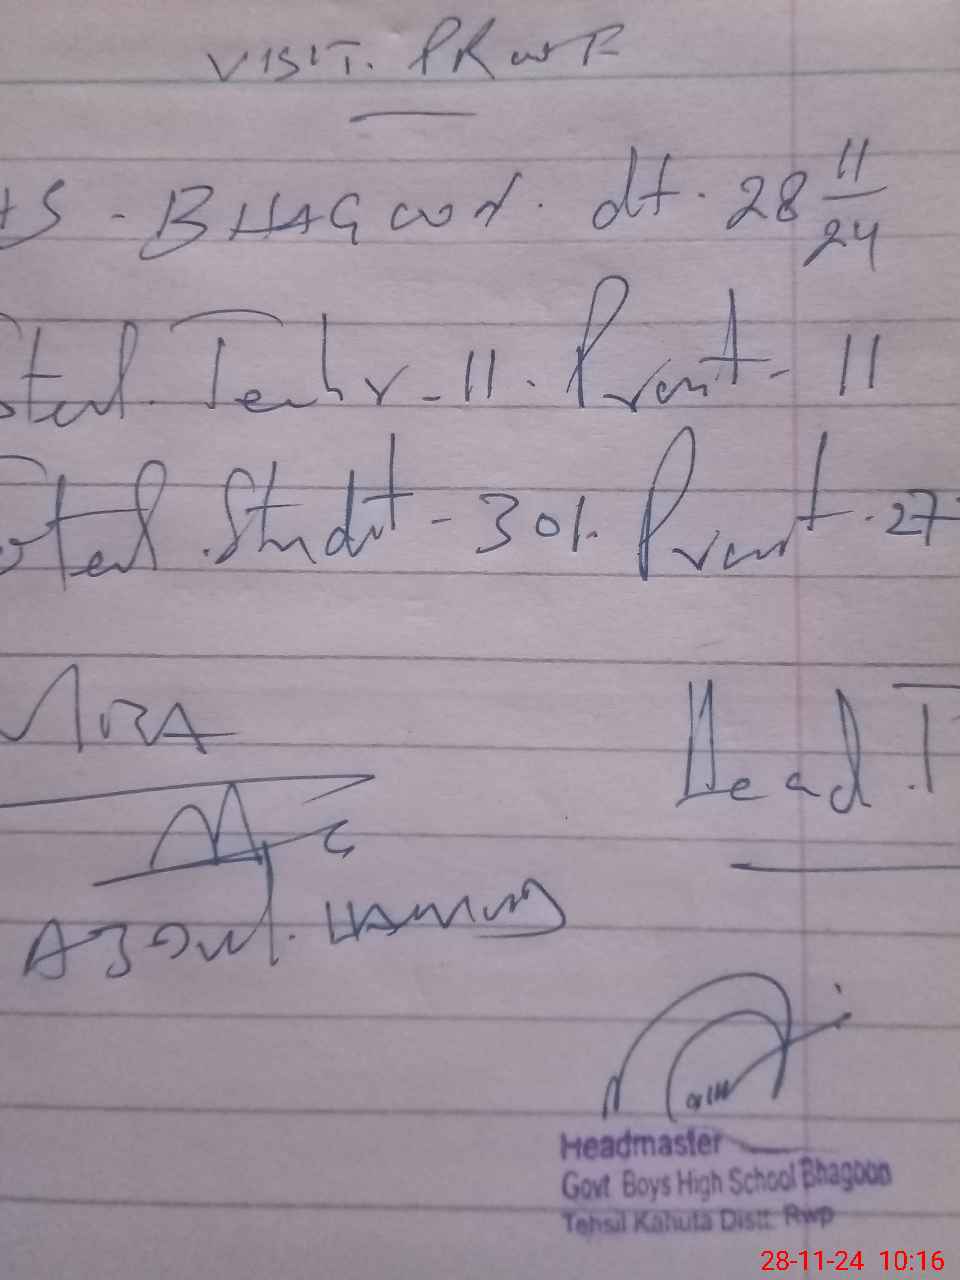 VISIT. PROOF
HS - BHAGOON. dt. 28 11/24
Total. Teachr - 11. Prent - 11
Total. Studt - 301. Prent - 27
Head. T
Abdul. Hameed
Headmaster
Govt Boys High School Bhagoon
Tehsil Kahuta Distt. Rwp
28-11-24 10:16